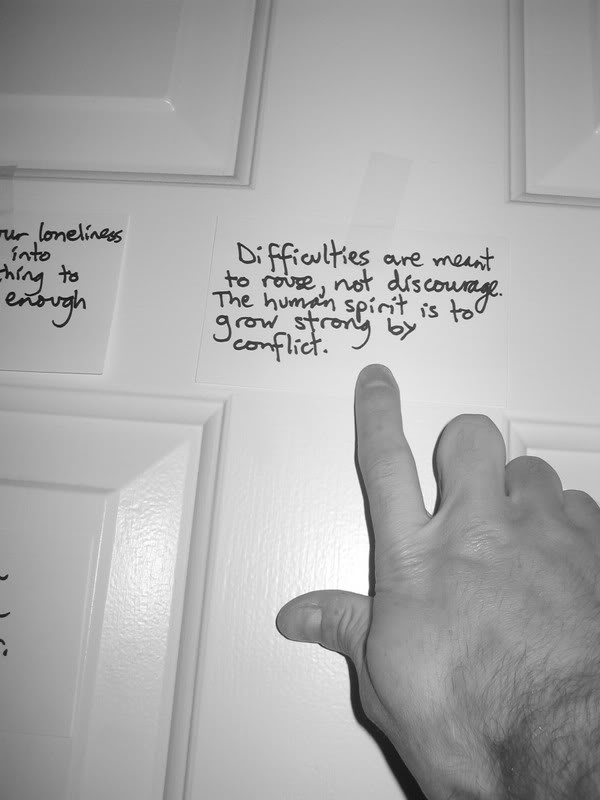 our loneliness
into
thing to
enough
Difficulties are meant
to rouse, not discourage.
The human spirit is to
grow strong by
conflict.